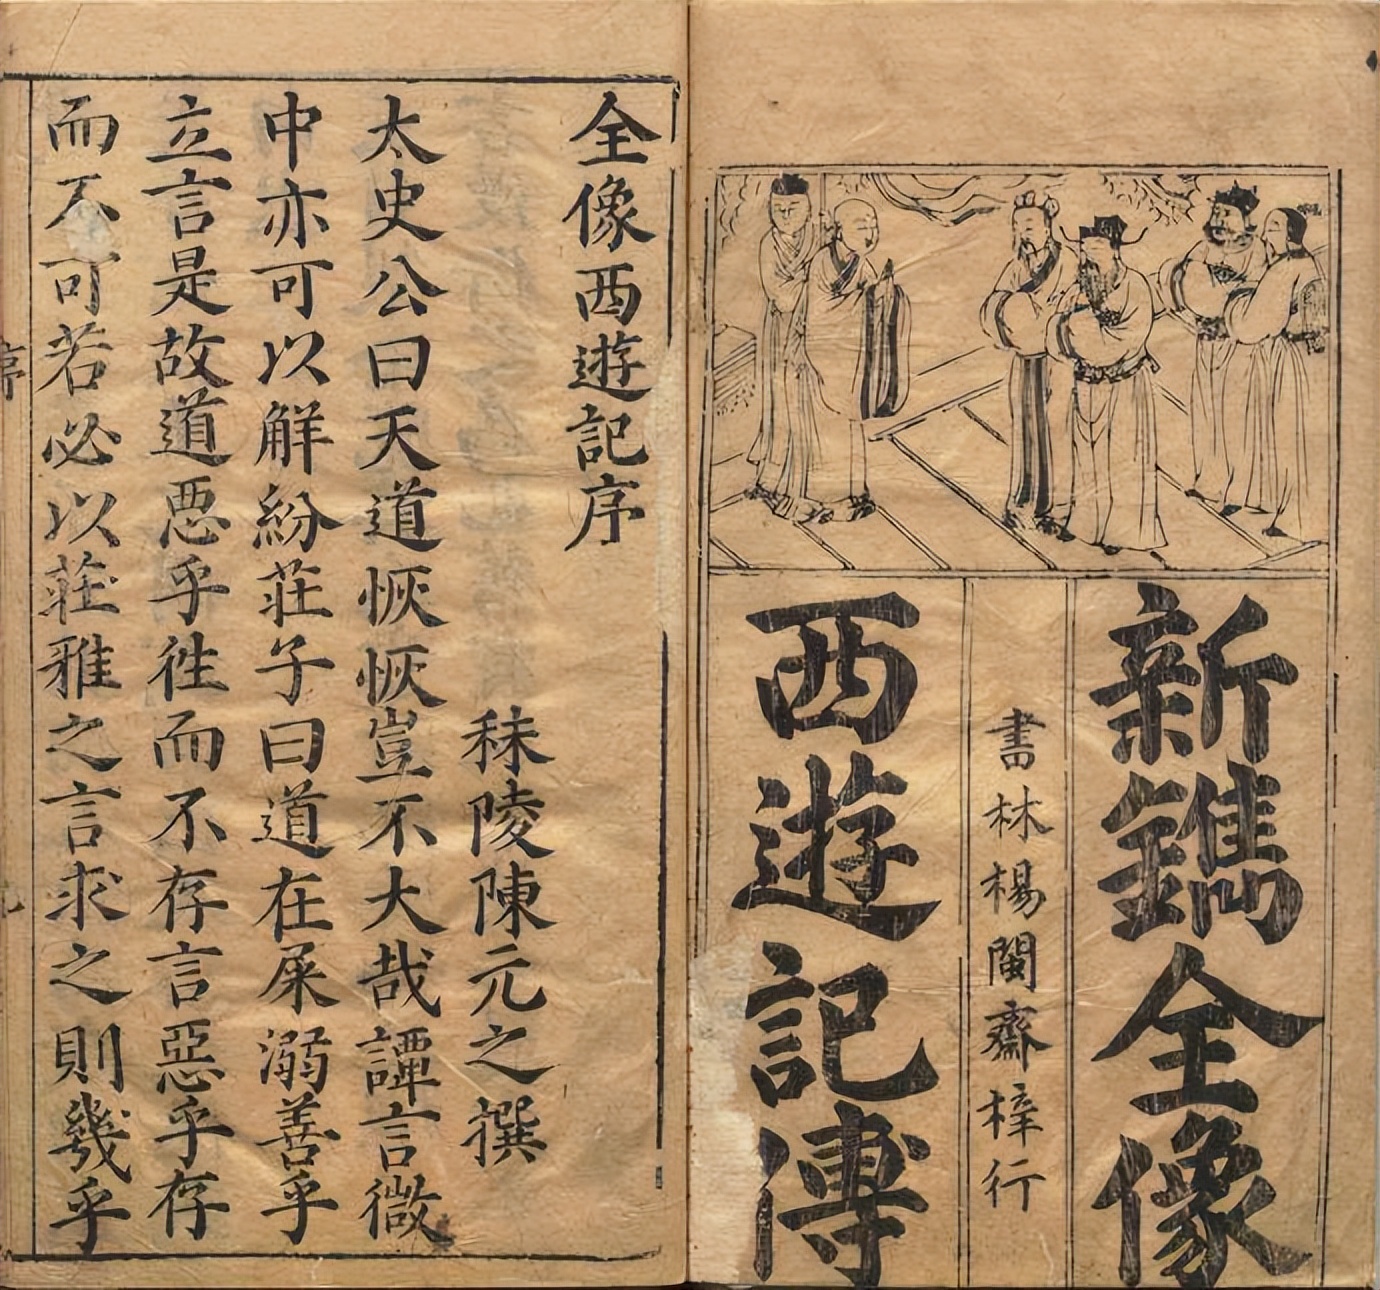 新鐫全像
書林楊閩齋梓行
西遊記傳
全像西遊記序
秣陵陳元之撰
太史公曰天道恢恢豈不大哉譚言微
中亦可以解紛莊子曰道在屎溺善乎
立言是故道惡乎徃而不存言惡乎存
而不可若必以莊雅之言求之則幾乎
序